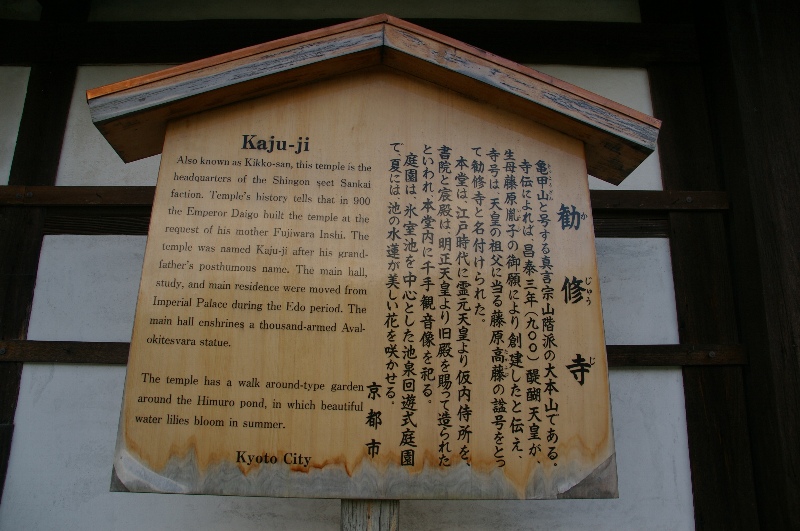 Kaju-ji
Also known as Kikko-san, this temple is the
headquarters of the Shingon sect Sankai
faction. Temple's history tells that in 900
the Emperor Daigo huilt the temple at the
request of his mother Fujiwara Inshi. The
temple was named Kaju-ji after his grand-
father's posthumous name. The main hall,
study, and main residence were moved from
Imperial Palace during the Edo period. The
main hall enshrines a thousand-armed Aval-
okitesvara statue.
The temple has a walk around-type garden
around the Himuro pond, in which beautiful
water lilies bloom in summer.
Kyoto City
勧修寺
かじゅうじ
亀甲山と号する真言宗山階派の大本山である。
寺伝によれば、昌泰三年(九〇〇)醍醐天皇が、
生母藤原胤子の御願により創建したと伝え、
寺号は、天皇の祖父に当る藤原高藤の諡号をとっ
て勧修寺と名付けられた。
本堂は、江戸時代に霊元天皇より仮内侍所を、
書院と宸殿は、明正天皇より旧殿を賜って造られた
といわれ、本堂内に千手観音像を祀る。
庭園は、氷室池を中心とした池泉回遊式庭園
で、夏には、池の水蓮が美しい花を咲かせる。
京都市